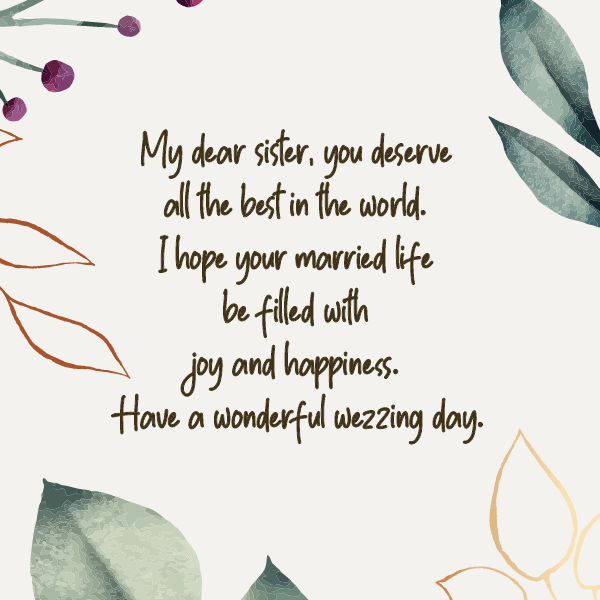 My dear sister, you deserve
all the best in the world.
I hope your married life
be filled with
joy and happiness.
Have a wonderful wezzing day.